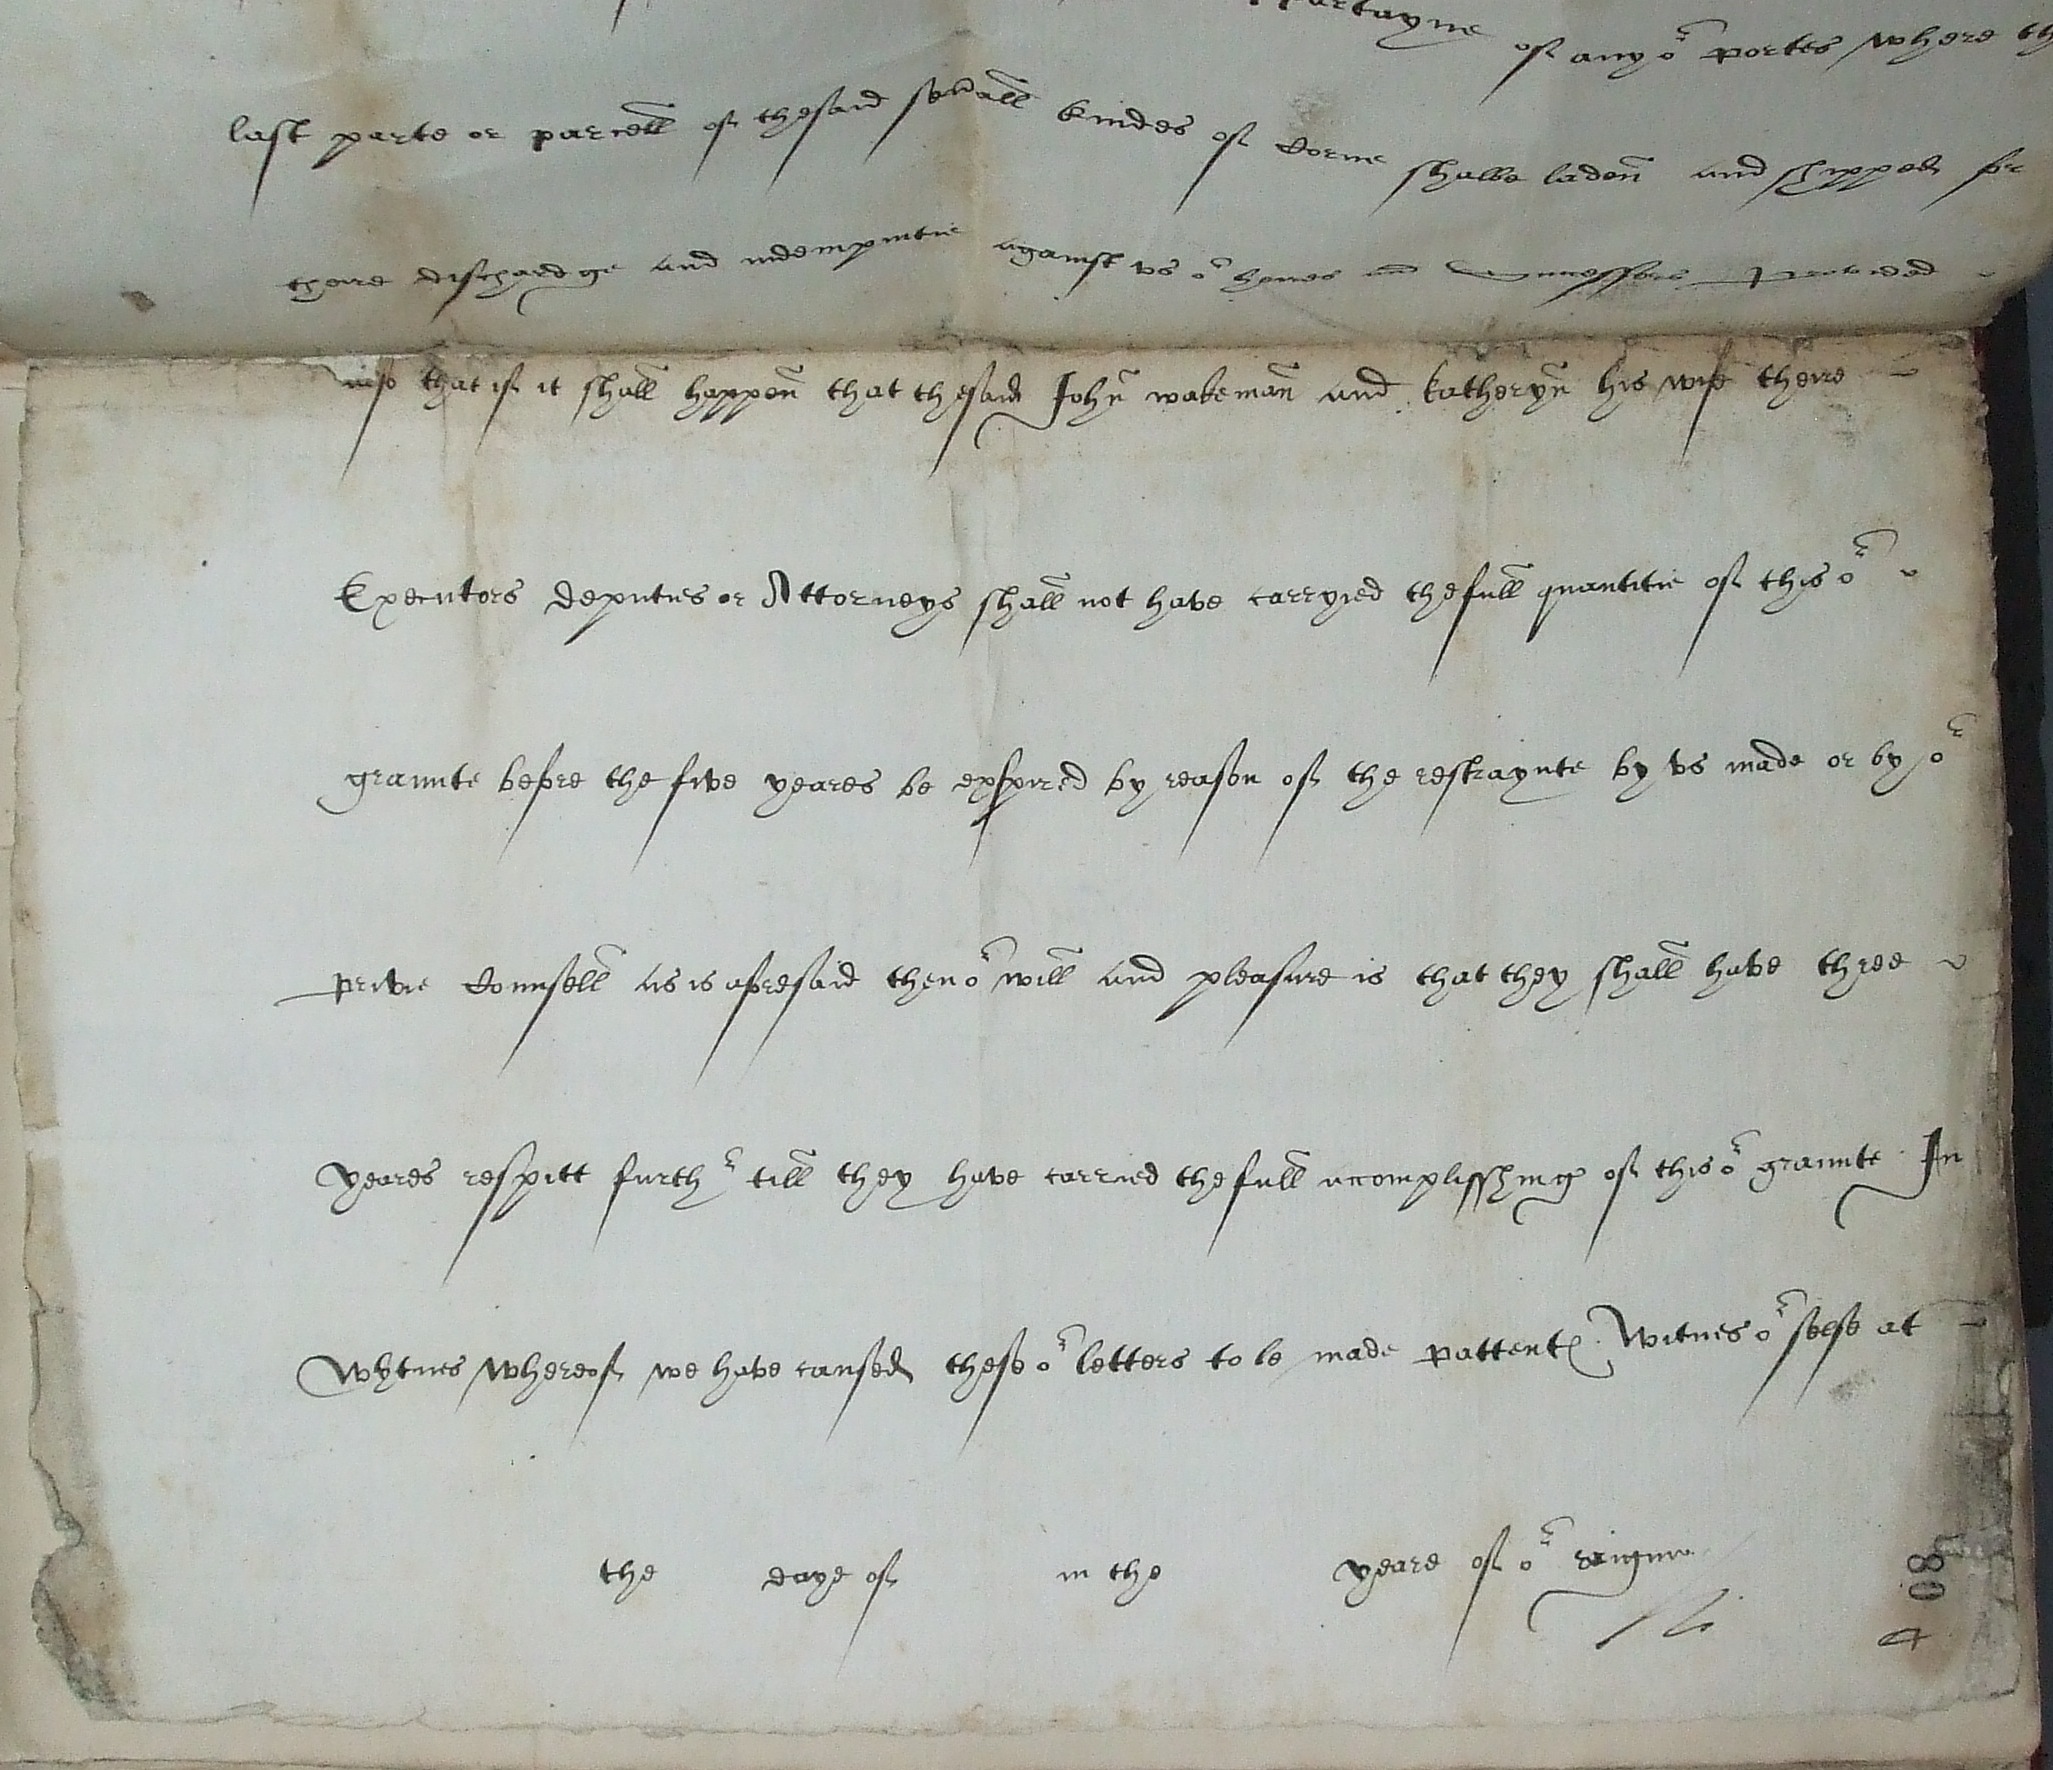 of any or portes where th
last parte or parcell of thesaid seuall kindes of Corne shalbe laden and shipped for
theire dischardge and indempnitie against vs or heires and Successors Provided
also that if it shall happen that thesaid John wakeman and Katheryn his wife theire
Executors deputies or Attorneys shall not have carryed thefull quantitie of this or
graunte before the five yeares be expired by reason of the restraynte by vs made or by or
privie Counsell as is aforesaid then or will and pleasure is that they shall have three
yeares respitt furthr till they have carried thefull accomplisshing of this or graunte In
Wytnes whereof we have caused these or letters to be made pattents. Witnes or selfe at
the daye of in the yeare of or reigne
408